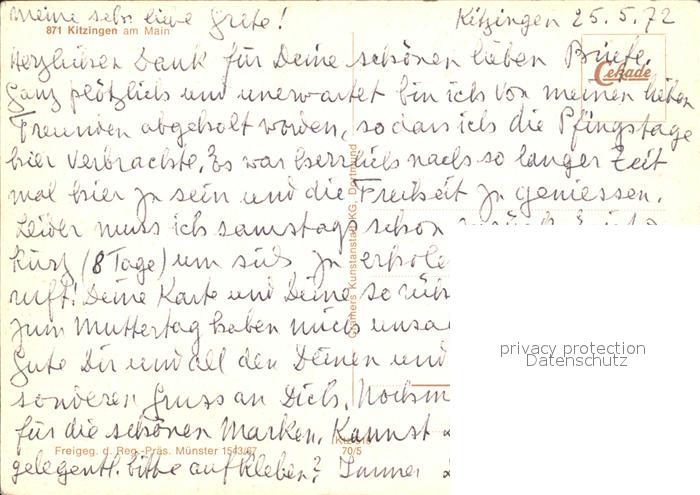 Meine sehr liebe Grete! Kitzingen 25.5.72
871 Kitzingen am Main
Herzlichen Dank für Deine schönen lieben Briefe.
Cekade
Ganz plötzlich und unerwartet bin ich von meinen lieben
Freunden abgeholt worden, sodass ich die Pfingstage
hier verbrachte. Es war herrlich nach so langer Zeit
mal hier zu sein und die Freiheit zu geniessen.
Leider muss ich samstags schon
kurz (8 Tage) um sich zu erhole
ruft! Deine Karte und Deine so
zum Muttertag haben mich
Gute Dir und all den Deinen und
privacy protection
Datenschutz
sonderen Gruss an Dich. Nochm
für die schönen Marken. Kannst
Freigeg. d. Reg.-Präs. Münster 1543/67
70/5
gelegentl. bitte aufkleben? Immer
Cramers Kunstanstalt KG, Dortmund